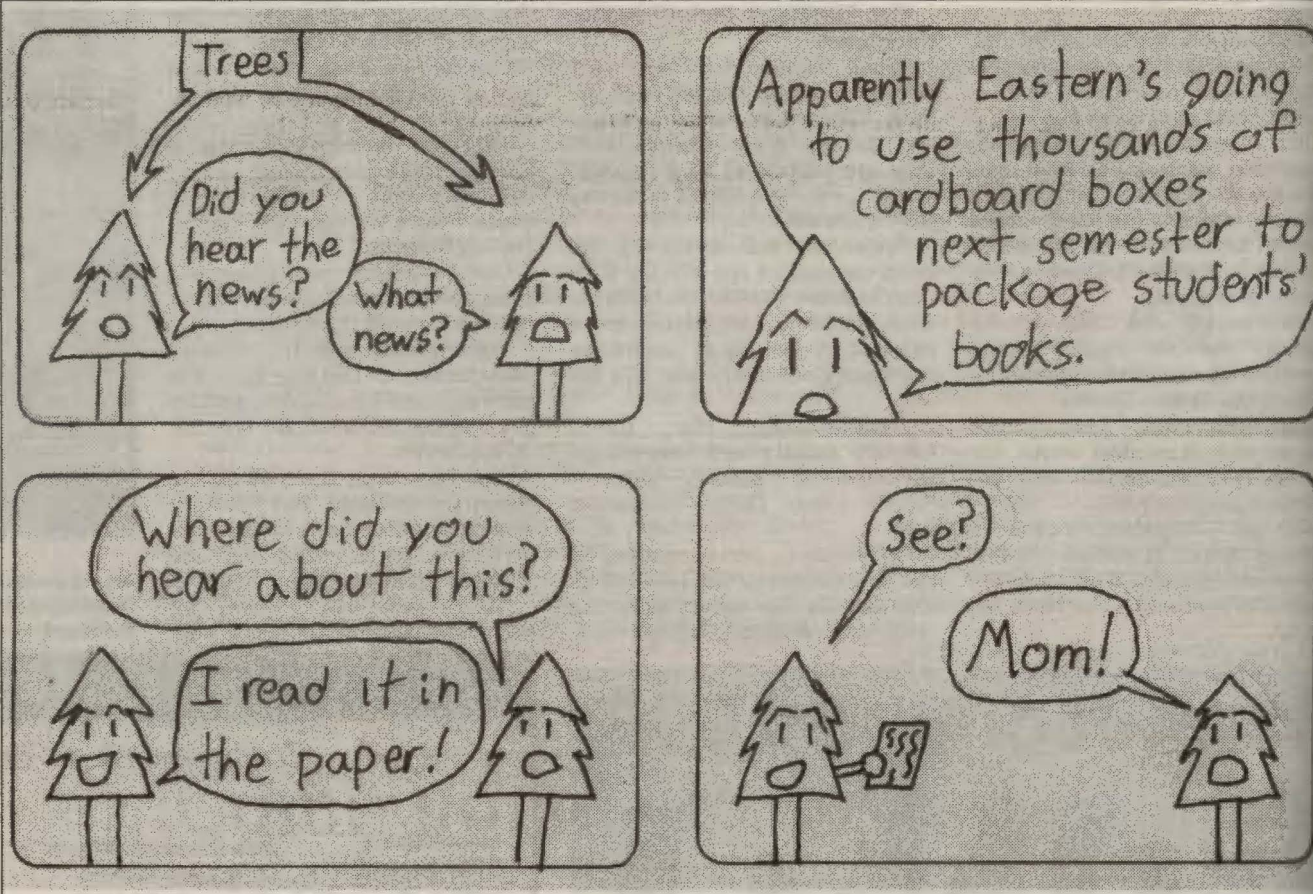 Trees
Did you
hear the
news?
What
news?
Apparently Eastern's going
to use thousands of
cardboard boxes
next semester to
package students'
books.
Where did you
hear about this?
I read it in
the paper!
See?
Mom!